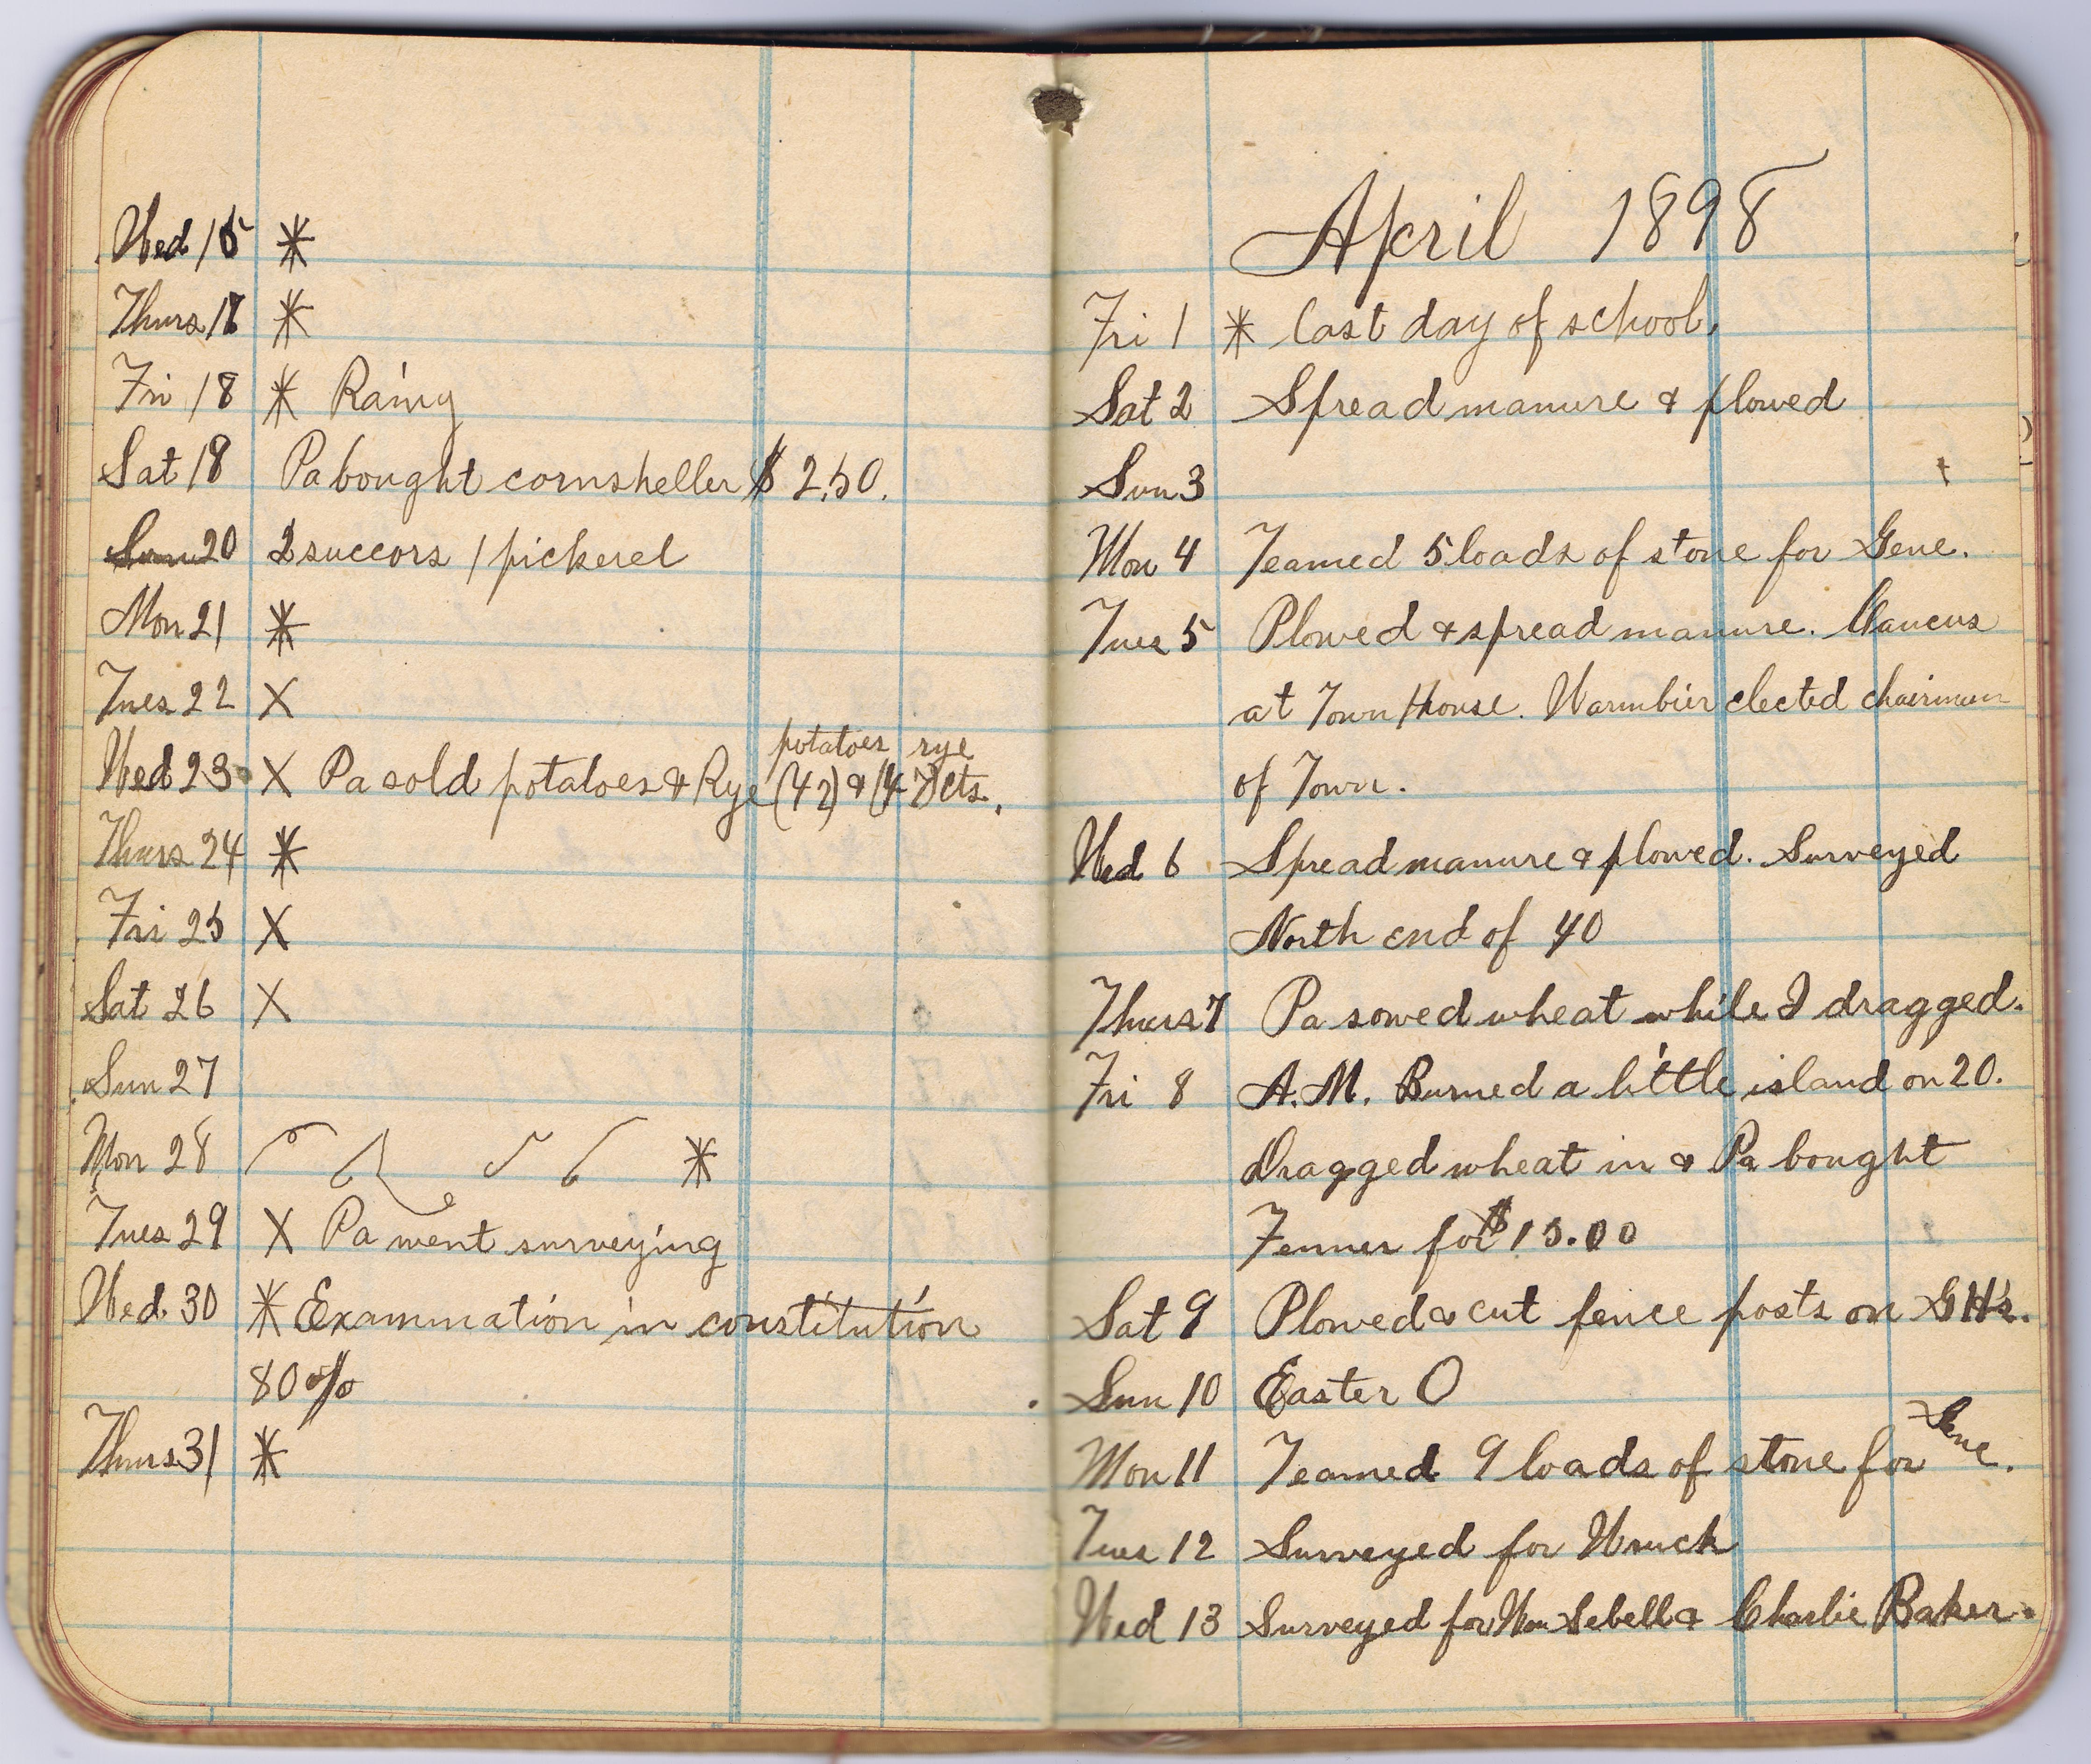 Wed 16 *
Thurs 17 *
Fri 18 * Rainy
Sat 18 Pa bought cornsheller $ 2.50.
Sun 20 2 succors 1 pickerel
Mon 21 *
Tues 22 X
potatoes rye
Wed 23 X Pa sold potatoes & Rye (42) & (47) cts.
Thurs 24 *
Fri 25 X
Sat 26 X
Sun 27
Mon 28 *
Tues 29 X Pa went surveying
Wed. 30 * Examination in constitution
80%
Thurs 31 *
April 1898
Fri 1 * last day of school.
Sat 2 Spread manure & plowed
Sun 3
Mon 4 Teamed 5 loads of stone for Gene.
Tues 5 Plowed & spread manure. Caucus
at Town House. Warmbier elected chairman
of Town.
Wed 6 Spread manure & plowed. Surveyed
North end of 40
Thurs 7 Pa sowed wheat while I dragged.
Fri 8 A.M. Burned a little island on 20.
Dragged wheat in & Pa bought
for $15.00
Sat 9 Plowed & cut fence posts on GH's.
Sun 10 Easter O
Mon 11 Teamed 9 loads of stone for Gene.
Tues 12 Surveyed for Wruck
Wed 13 Surveyed for Wm Sebell & Charlie Baker.